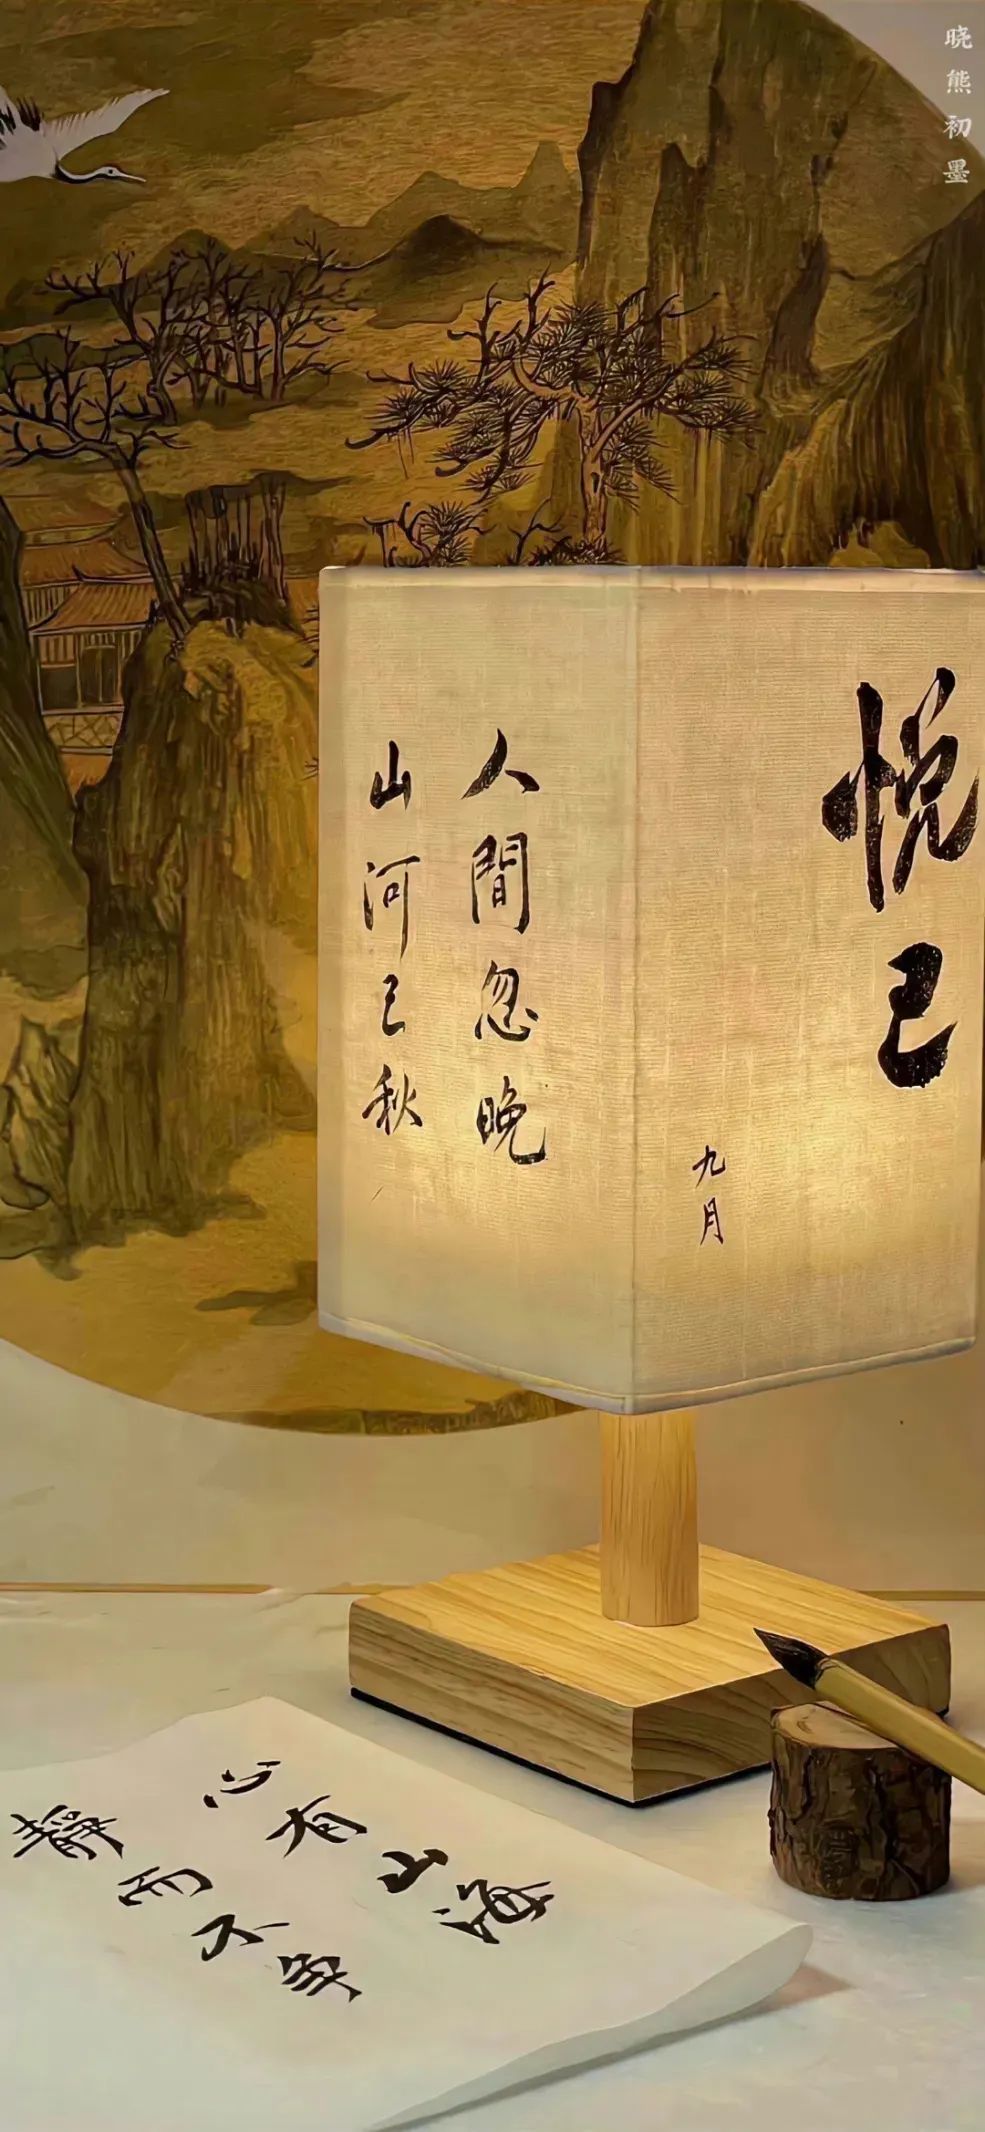 晓熊初墨
人間忽晚
山河已秋
悦己
九月
心有山海
静而不争